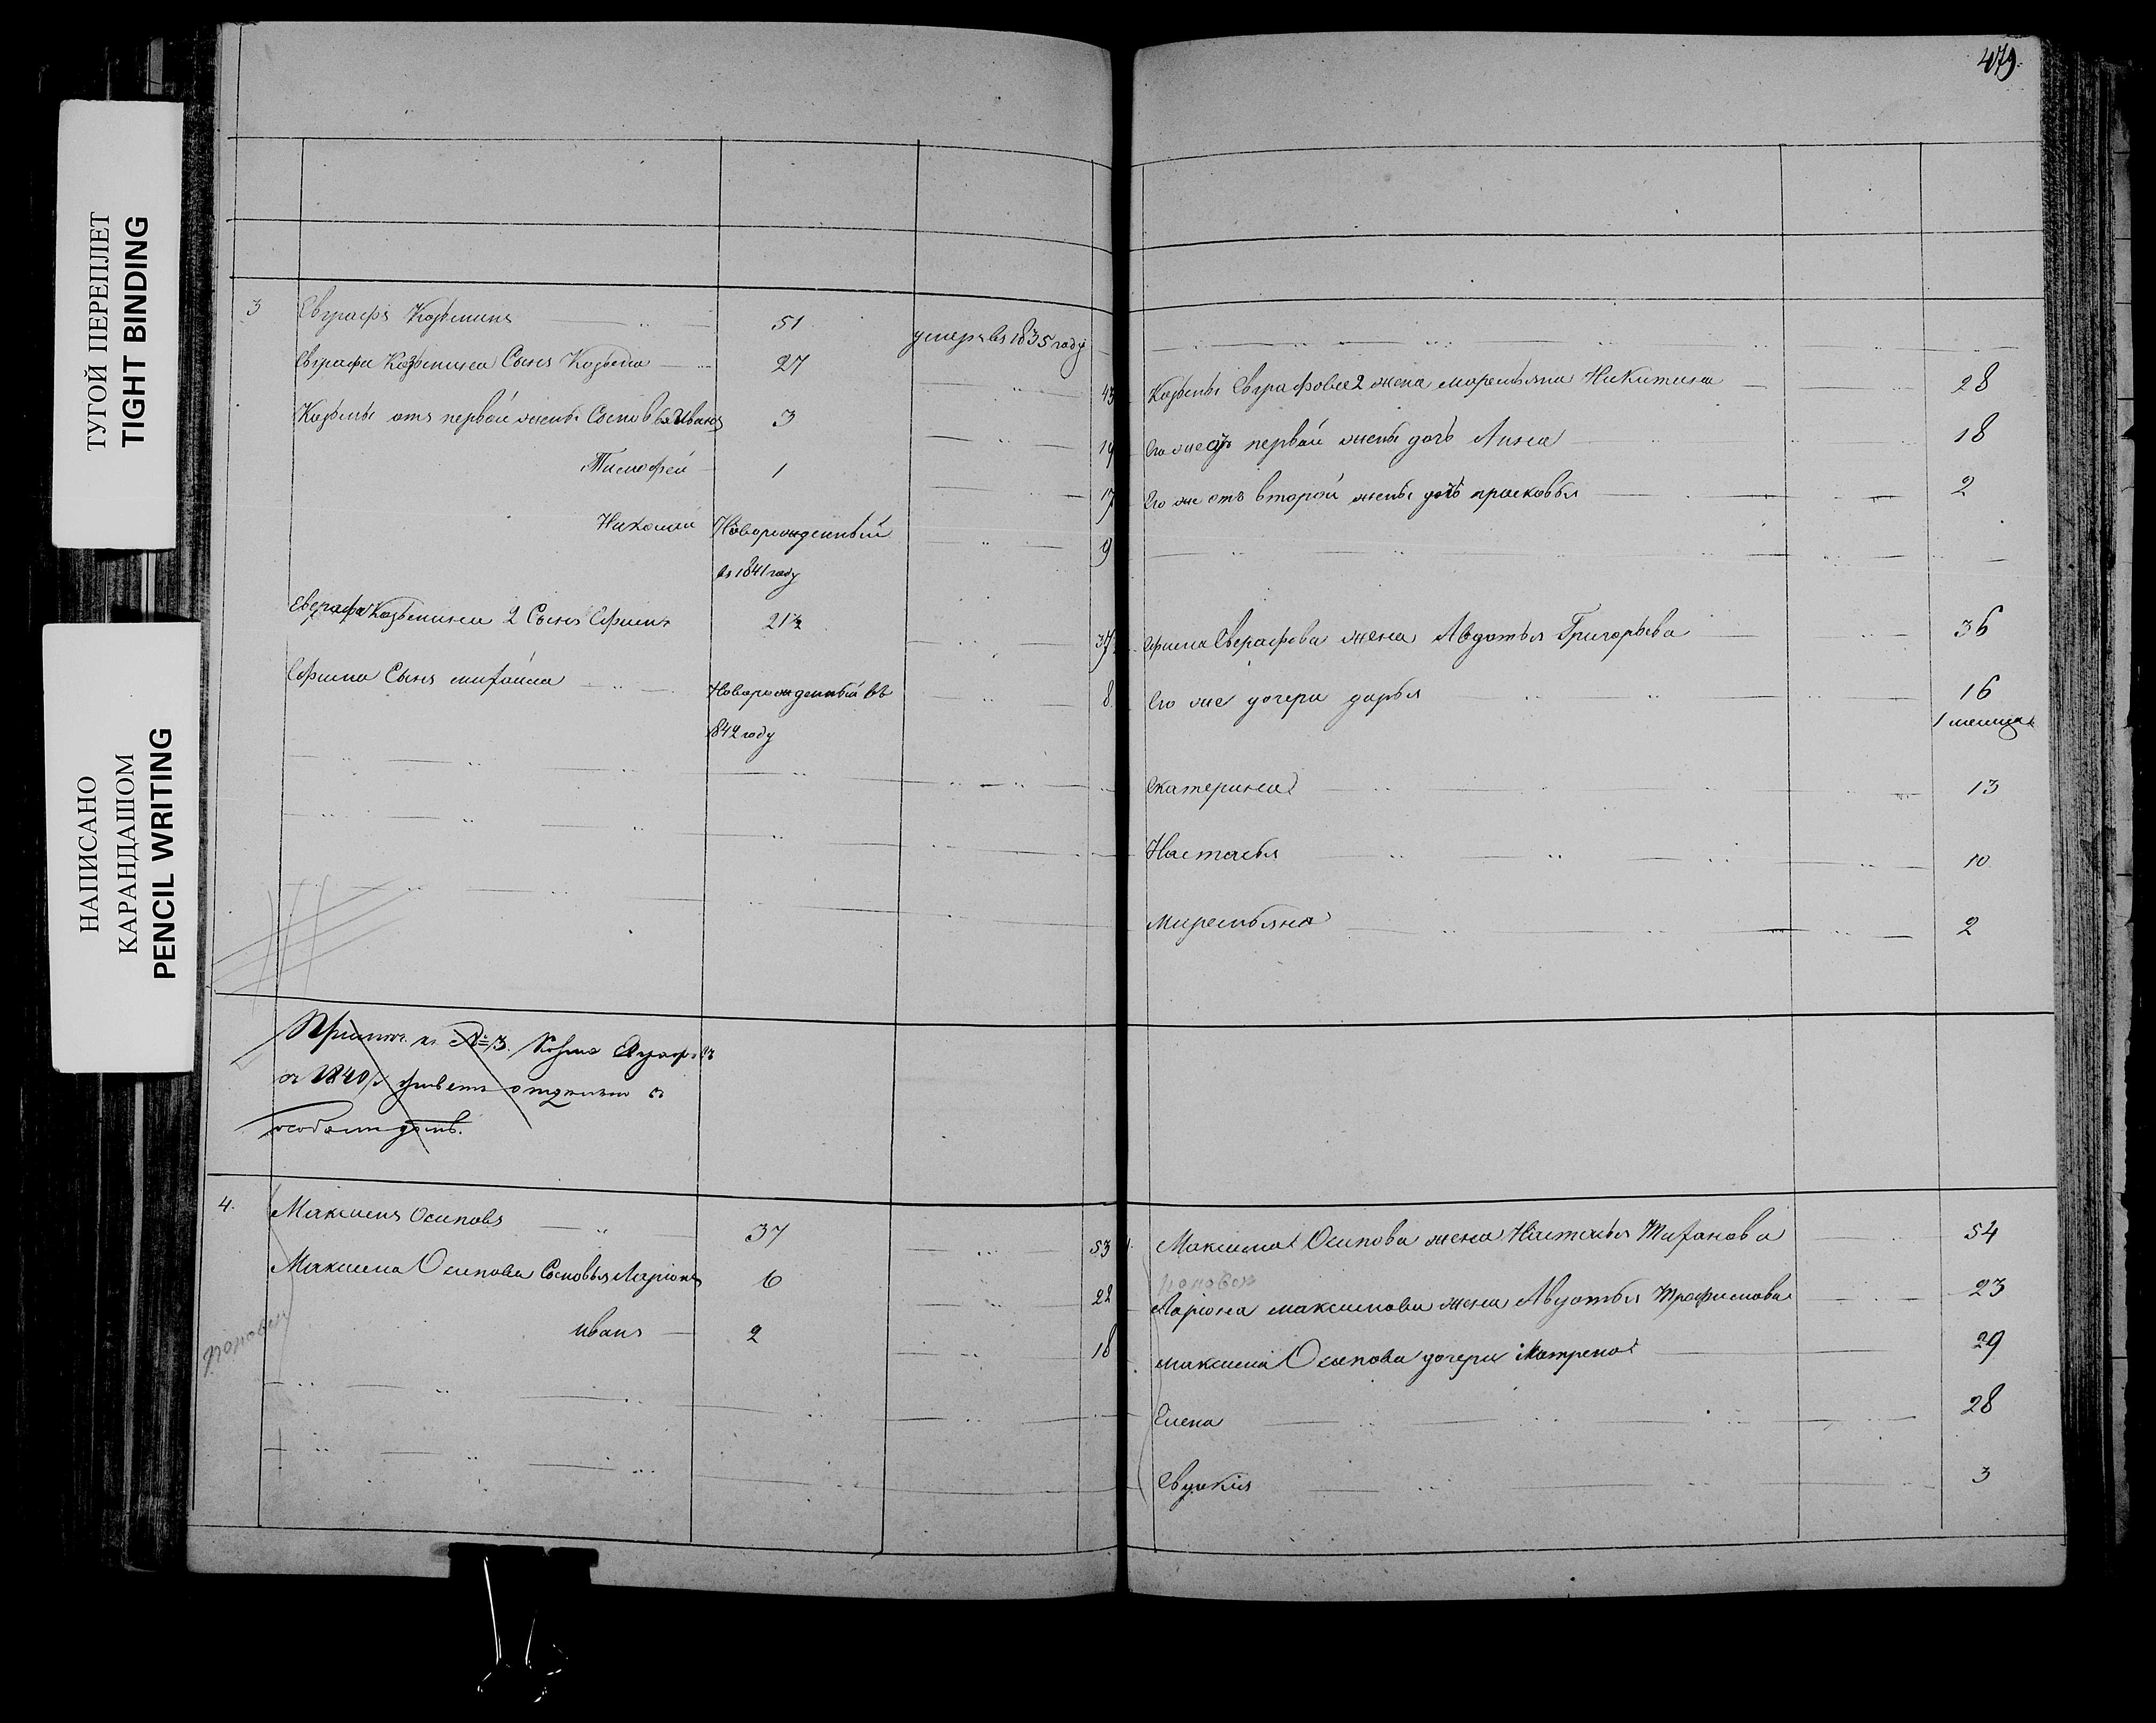 ТУГОЙ ПЕРЕПЛЕТ
TIGHT BINDING
НАПИСАНО
КАРАНДАШОМ
PENCIL WRITING
3 Евграфъ Козьминъ 51 умеръ въ 1835 году
Евграфа Козьмина Сынъ Козьма 27 43
Козьмы отъ первой жены Сыновья Иванъ 3 19
Тимофей 1 17
Николай Новорожденный 9
въ 1841 году
Евграфа Козьмина 2 Сынъ Ефимъ 21½ 37
Ефима Сынъ михайла Новорожденный въ 8
1842 году
Примеч. къ № 3. Козма
съ 1840 г. живетъ отдельно въ
особомъ доме.
4. Максимъ Осиповъ 37 53
Максима Осипова Сыновья Ларіонъ 6 22
иванъ 2 18
попович
479.
Козьмы Евграфова 2 жена маремьяна Никитина 28
Его же отъ первой жены дочь Анна 18
Его же отъ второй жены дочь прасковья 2
Ефима Евграфова жена Авдотья Григорьева 36
Его же дочери дарья 16
1 месяца
Екатерина 13
Настасья 10
Миремьяна 2
Максима Осипова жена Настасья Тиханова 54
Ларіона максимова жена Авдотья Трофимова 23
максима Осипова дочери Матрена 29
Елена 28
Евдокія 3